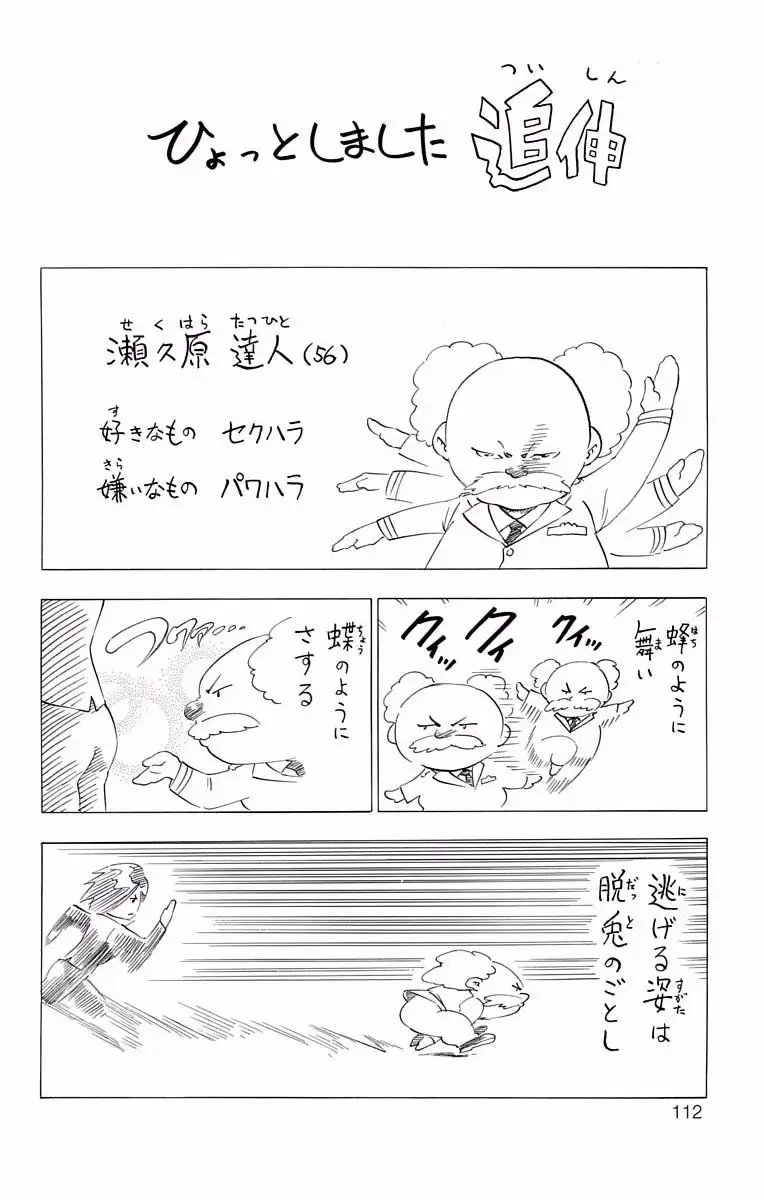 ひょっとしました 追伸
ついしん
瀬久原 達人(56)
せくはら たつひと
好きなもの セクハラ
す
嫌いなもの パワハラ
きら
蜂のように
はち
舞い
ま
クイッ
クイッ
クイッ
蝶のように
ちょう
さする
フワァァ…
逃げる姿は
に すがた
脱兎のごとし
だっと
112